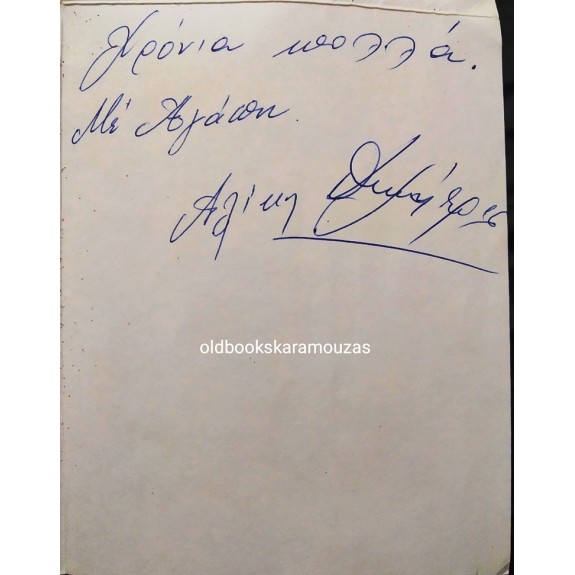 Χρόνια πολλά.
Μέ Αγάπη.
Αλίκη
oldbookskaramouzas